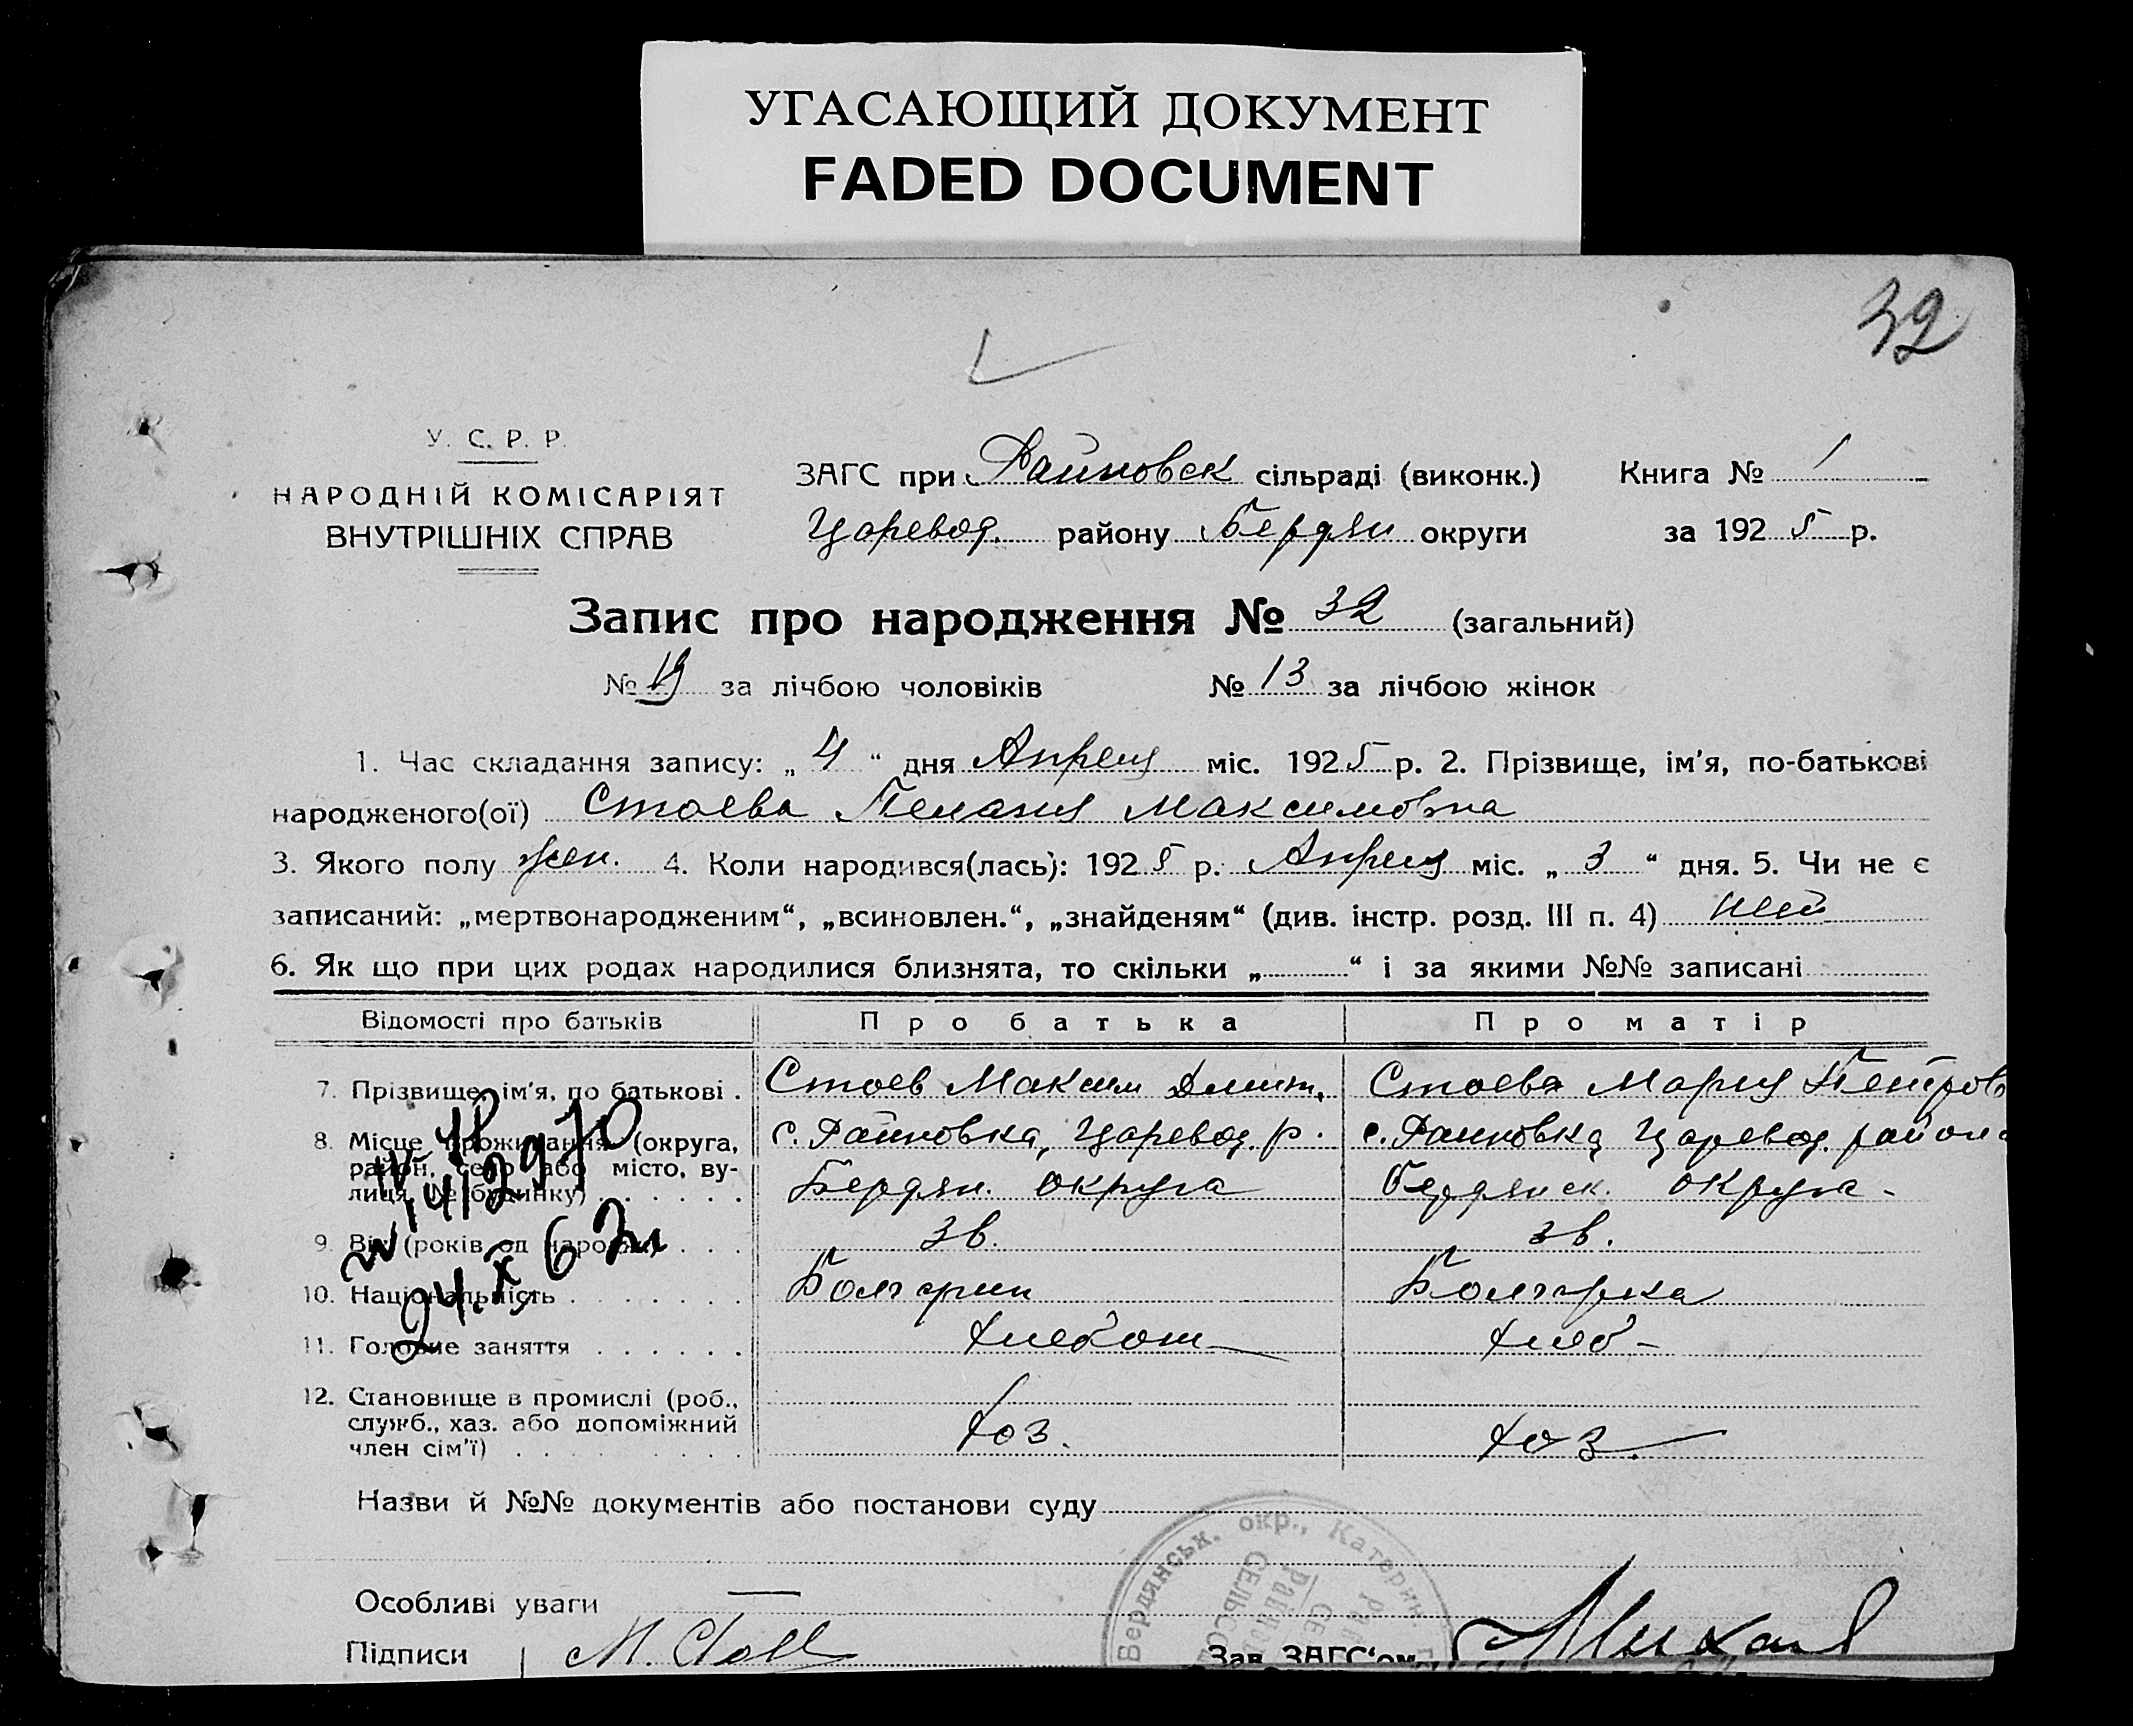 УГАСАЮЩИЙ ДОКУМЕНТ
FADED DOCUMENT
32
У. С. Р. Р.
НАРОДНІЙ КОМІСАРІЯТ
ВНУТРІШНІХ СПРАВ
ЗАГС при Райновск сільраді (виконк.) Книга № 1
Царевод. району Бердян округи за 1925 р.
Запис про народження № 32 (загальний)
№ 19 за лічбою чоловіків № 13 за лічбою жінок
1. Час складання запису: „ 4 “ дня Апреля міс. 1925 р. 2. Прізвище, ім'я, по-батькові
народженого(ої) Стоева Пелагия Максимовна
3. Якого полу жен. 4. Коли народився(лась): 1925 р. Апреля міс. „ 3 “ дня. 5. Чи не є
записаний: „мертвонародженим“, „всиновлен.“, „знайденям“ (див. інстр. розд. III п. 4)
6. Як що при цих родах народилися близнята, то скільки „ “ і за якими №№ записані
Відомості про батьків Про батька Про матір
7. Прізвище, ім'я, по батькові . Стоев Максим Дмит. Стоева Мария Петров
8. Місце проживання (округа, с. Райновка, Царевод. р. с. Райновка Царевод. района
район, село або місто, ву-
лиця, № будинку) Бердян. округа Бердянск. округа-
9. Вік (років од народж.) 38. 38.
10. Національність Болгарин Болгарка
11. Головне заняття хлебоп хлеб-
12. Становище в промислі (роб.,
служб., хаз. або допоміжний хоз. хоз.
член сім'ї)
24.X 62
Назви й №№ документів або постанови суду
Особливі уваги —
Підписи М. Стоев Зав. ЗАГС'ом
Бердянськ. окр., Катерин.